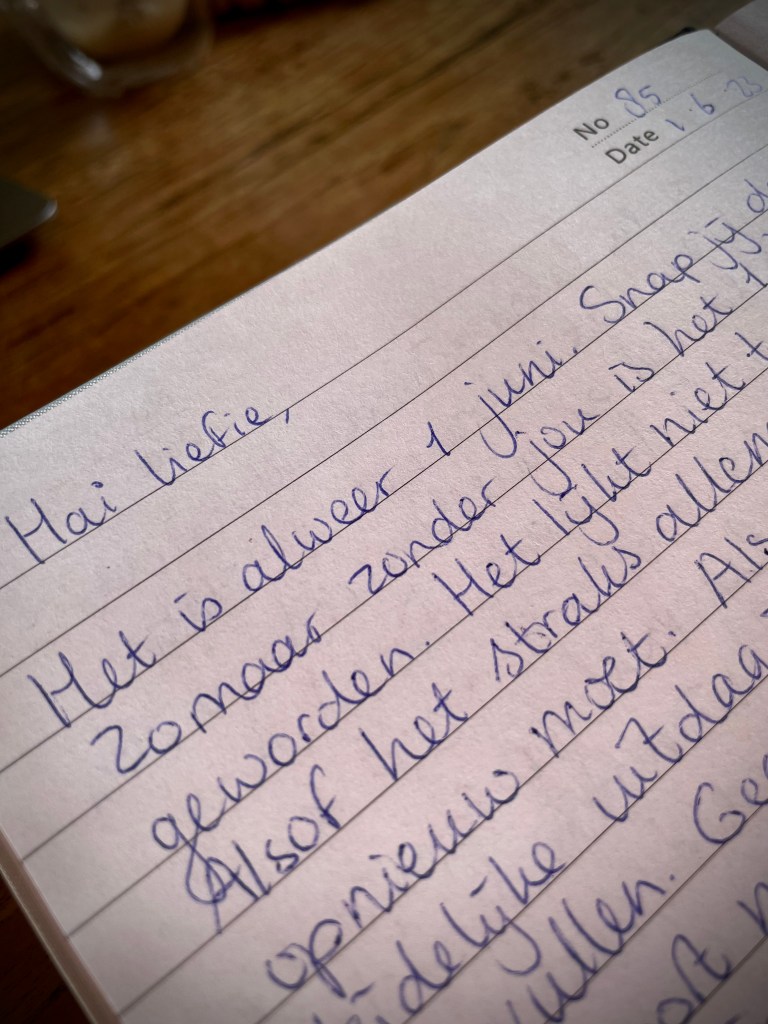 No 85
Date 1.6.23
Hai liefie,
Het is alweer 1 juni. Snap jij
zomaar zonder jou is het
geworden. Het lijkt niet
Alsof het straks allem
opnieuw moet. Als
uitdaa
vullen. Gee